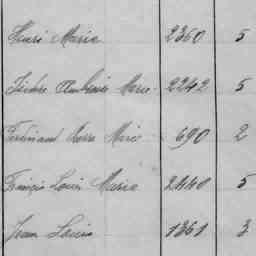 Henri Marie 2360 5
Isidore Ambroise Marie 2242 5
Ferdinand Pierre Marie 690 2
François Louis Marie 2440 5
Jean Louis 1361 3